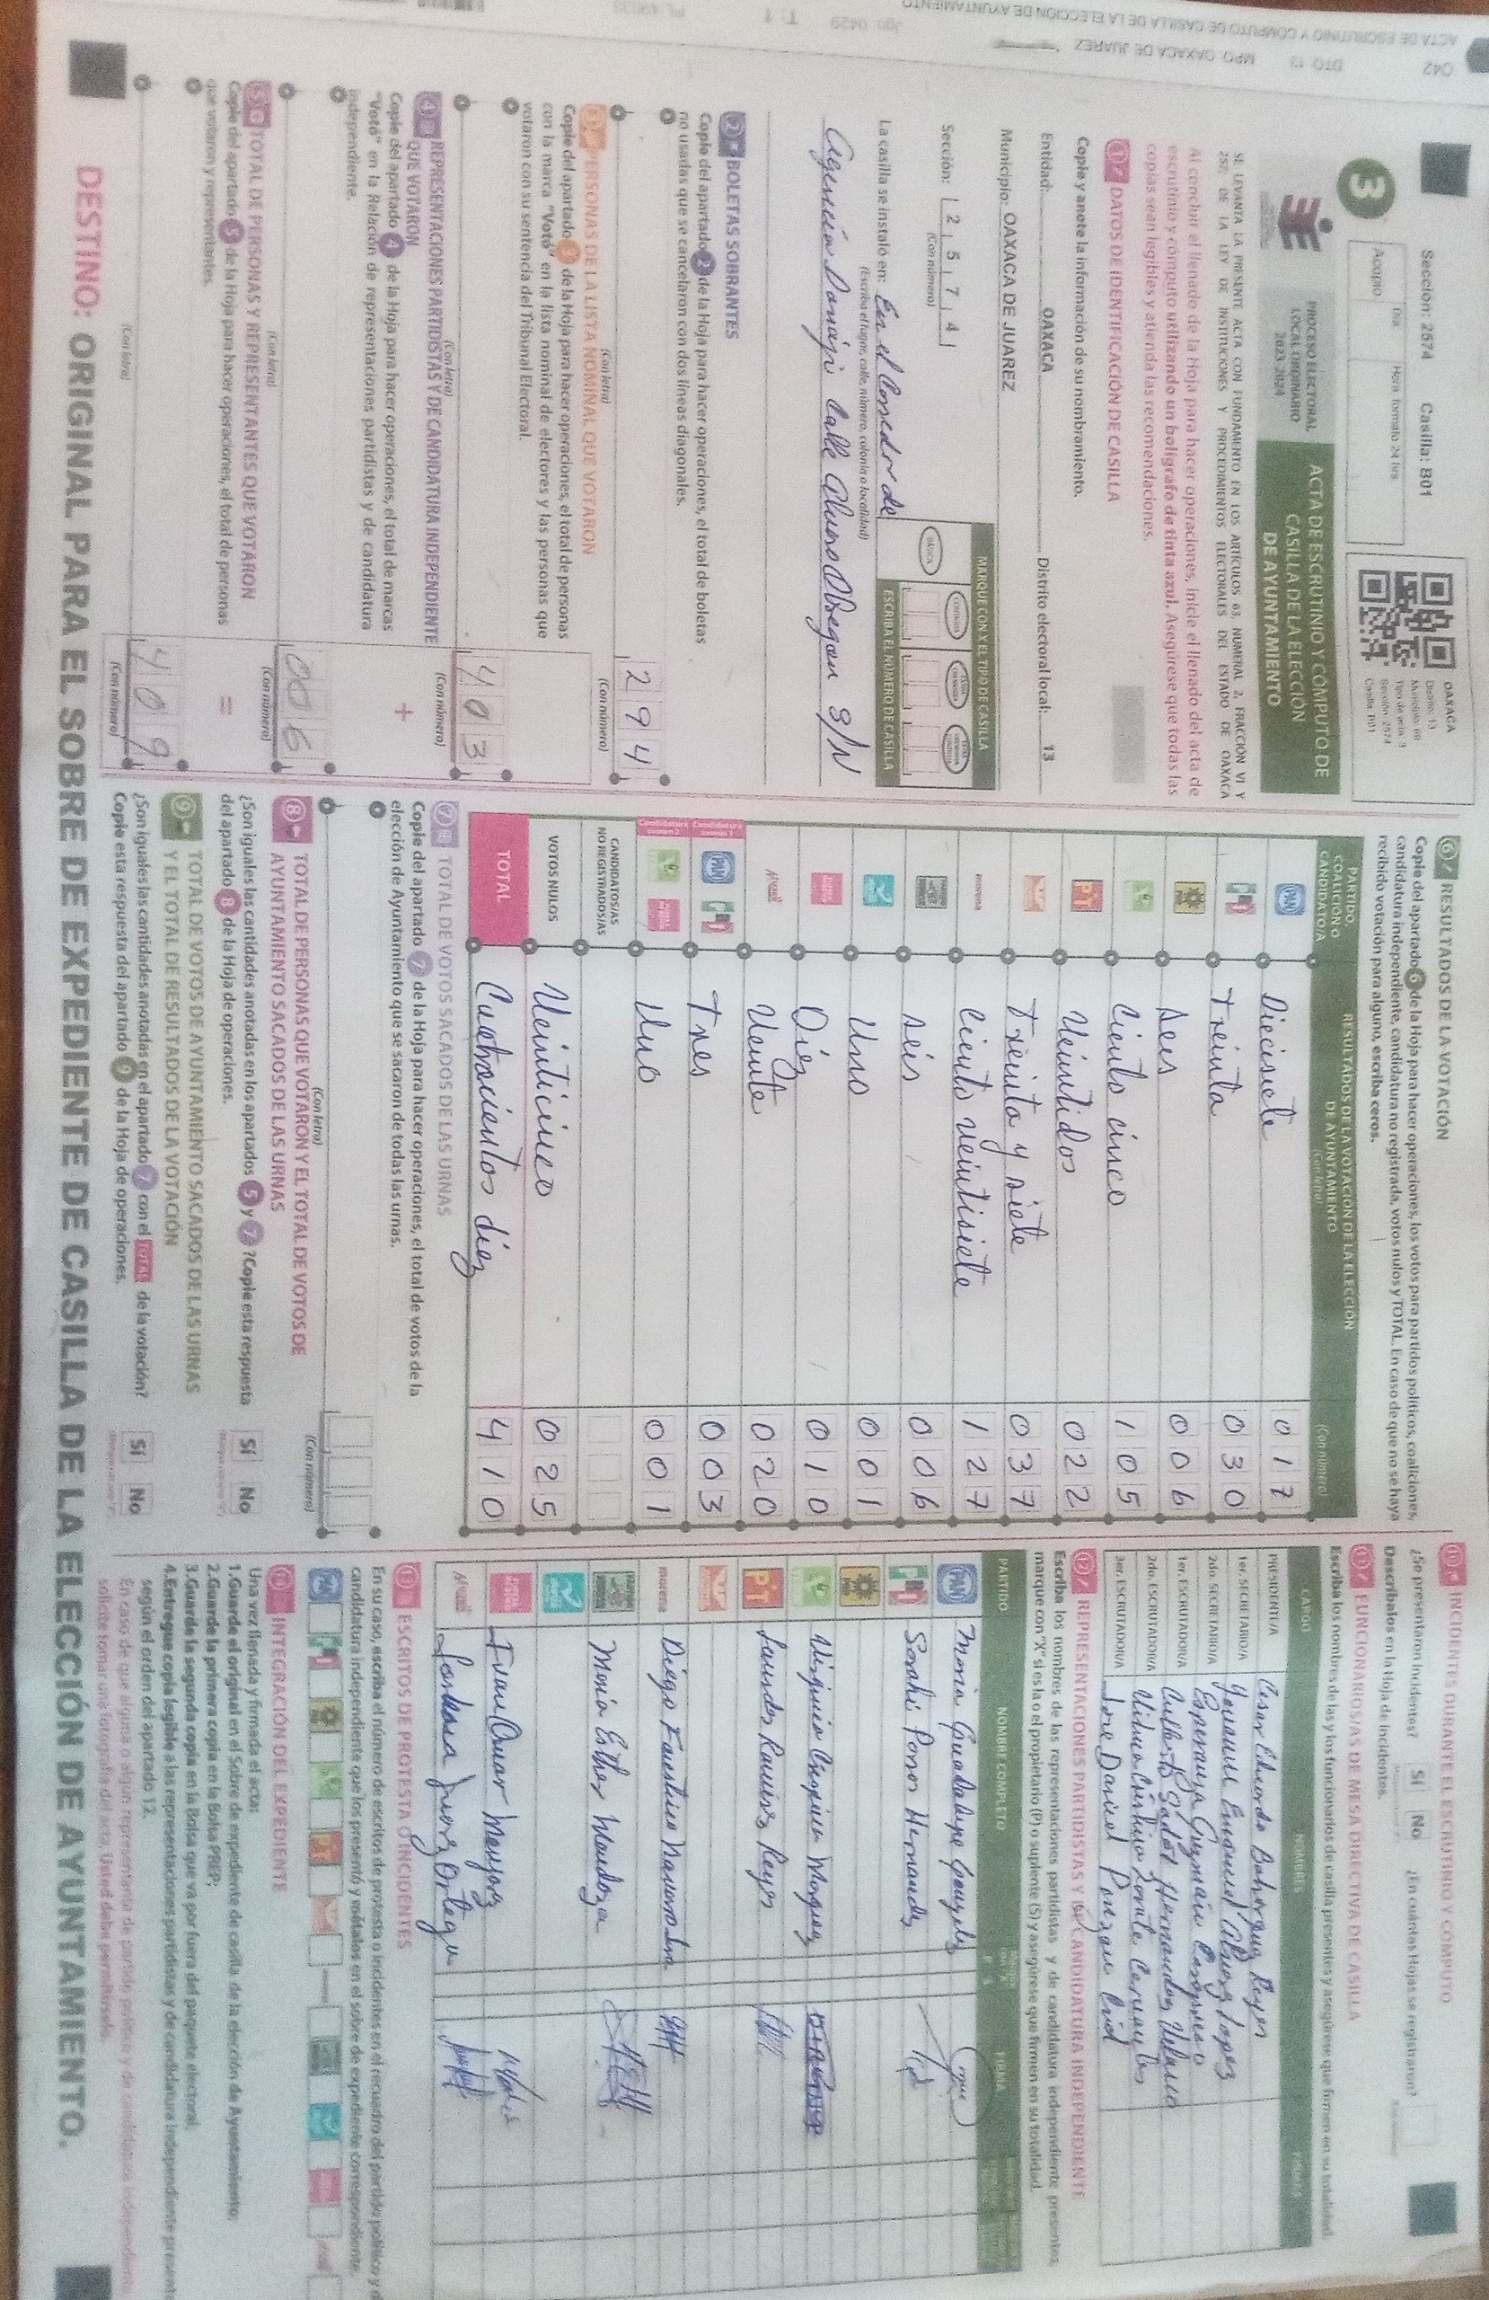 ACTA DE ESCRUTINIO Y CÓMPUTO DE CASILLA DE LA ELECCIÓN DE AYUNTAMIENTO
Sección: 2574 Casilla: B01
Acopio
Día
Hora formato 24 hrs
OAXACA
Distrito: 13
Sección: 2574
Casilla: B01
3
PROCESO ELECTORAL
LOCAL ORDINARIO
2023-2024
ACTA DE ESCRUTINIO Y CÓMPUTO DE
CASILLA DE LA ELECCIÓN
DE AYUNTAMIENTO
SE LEVANTA LA PRESENTE ACTA CON FUNDAMENTO EN LOS ARTÍCULOS 63, NUMERAL 2, FRACCIÓN VI Y
257; DE LA LEY DE INSTITUCIONES Y PROCEDIMIENTOS ELECTORALES DEL ESTADO DE OAXACA
Al concluir el llenado de la Hoja para hacer operaciones, inicie el llenado del acta de
escrutinio y cómputo utilizando un bolígrafo de tinta azul. Asegúrese que todas las
copias sean legibles y atienda las recomendaciones.
1 DATOS DE IDENTIFICACIÓN DE CASILLA
Copie y anote la información de su nombramiento.
Entidad: OAXACA Distrito electoral local: 13
Municipio: OAXACA DE JUAREZ
Sección: 2 5 7 4
(Con número)
MARQUE CON X EL TIPO DE CASILLA
BÁSICA
ESCRIBA EL NÚMERO DE CASILLA
La casilla se instaló en: En el Comedor de
(Escriba el lugar, calle, número, colonia o localidad)
Agencia Donají Calle Alvaro Obregon S/N
2 BOLETAS SOBRANTES
Copie del apartado 2 de la Hoja para hacer operaciones, el total de boletas
no usadas que se cancelaron con dos líneas diagonales.
2 9 4
(Con letra)
(Con número)
3 PERSONAS DE LA LISTA NOMINAL QUE VOTARON
Copie del apartado 3 de la Hoja para hacer operaciones, el total de personas
con la marca "Votó" en la lista nominal de electores y las personas que
votaron con su sentencia del Tribunal Electoral.
4 0 3
(Con letra)
(Con número)
4 REPRESENTACIONES PARTIDISTAS Y DE CANDIDATURA INDEPENDIENTE
QUE VOTARON
Copie del apartado 4 de la Hoja para hacer operaciones, el total de marcas
"Votó" en la Relación de representaciones partidistas y de candidatura
independiente.
+
0 0 6
(Con letra)
(Con número)
5 TOTAL DE PERSONAS Y REPRESENTANTES QUE VOTARON
Copie del apartado 5 de la Hoja para hacer operaciones, el total de personas
que votaron y representantes.
=
4 0 9
(Con letra)
(Con número)
6 RESULTADOS DE LA VOTACIÓN
Copie del apartado 6 de la Hoja para hacer operaciones, los votos para partidos políticos, coaliciones,
candidatura independiente, candidatura no registrada, votos nulos y TOTAL. En caso de que no se haya
recibido votación para alguno, escriba ceros.
PARTIDO,
COALICIÓN O
CANDIDATO/A
RESULTADOS DE LA VOTACIÓN DE LA ELECCIÓN
DE AYUNTAMIENTO
(Con letra)
(Con número)
PAN Diecisiete 0 1 7
PRI Treinta 0 3 0
Seis 0 0 6
Ciento cinco 1 0 5
PT Veintidos 0 2 2
Treinta y siete 0 3 7
morena Ciento veintisiete 1 2 7
seis 0 0 6
Uno 0 0 1
Diez 0 1 0
Veinte 0 2 0
PAN PRI Tres 0 0 3
Uno 0 0 1
CANDIDATOS/AS
NO REGISTRADOS/AS
VOTOS NULOS Veinticinco 0 2 5
TOTAL Cuatrocientos diez 4 1 0
7 TOTAL DE VOTOS SACADOS DE LAS URNAS
Copie del apartado 7 de la Hoja para hacer operaciones, el total de votos de la
elección de Ayuntamiento que se sacaron de todas las urnas.
(Con letra)
(Con número)
8 TOTAL DE PERSONAS QUE VOTARON Y EL TOTAL DE VOTOS DE
AYUNTAMIENTO SACADOS DE LAS URNAS
¿Son iguales las cantidades anotadas en los apartados 5 y 7? Copie esta respuesta
del apartado 8 de la Hoja de operaciones.
Sí No
9 TOTAL DE VOTOS DE AYUNTAMIENTO SACADOS DE LAS URNAS
Y EL TOTAL DE RESULTADOS DE LA VOTACIÓN
¿Son iguales las cantidades anotadas en el apartado 7 con el TOTAL de la votación?
Copie esta respuesta del apartado 9 de la Hoja de operaciones.
Sí No
10 INCIDENTES DURANTE EL ESCRUTINIO Y CÓMPUTO
¿Se presentaron incidentes? Sí No ¿En cuántas Hojas se registraron?
Descríbalos en la Hoja de incidentes.
11 FUNCIONARIOS/AS DE MESA DIRECTIVA DE CASILLA
Escriba los nombres de las y los funcionarios de casilla presentes y asegúrese que firmen en su totalidad.
CARGO NOMBRES FIRMAS
PRESIDENTE/A Cesar Eduardo Bohorquez Reyes
1er. SECRETARIO/A
2do. SECRETARIO/A Esperanza Guzmán
1er. ESCRUTADOR/A
2do. ESCRUTADOR/A
3er. ESCRUTADOR/A
12 REPRESENTACIONES PARTIDISTAS Y DE CANDIDATURA INDEPENDIENTE
Escriba los nombres de las representaciones partidistas y de candidatura independiente presentes,
marque con "X" si es la o el propietario (P) o suplente (S) y asegúrese que firmen en su totalidad.
PARTIDO NOMBRE COMPLETO FIRMA
PAN Maria Guadalupe Gonzalez
PRI Sarahi Porras Hernandez
PT Lourdes Ramirez Reyes
morena Diego Faustino Navarro
Maria Esther Mendoza
Ivan Omar
13 ESCRITOS DE PROTESTA O INCIDENTES
En su caso, escriba el número de escritos de protesta o incidentes en el recuadro del partido político y
candidatura independiente que los presentó y métalos en el sobre de expediente correspondiente.
INTEGRACIÓN DEL EXPEDIENTE
Una vez llenada y firmada el acta:
1. Guarde el original en el Sobre de expediente de casilla de la elección de Ayuntamiento;
2. Guarde la primera copia en la Bolsa PREP;
3. Guarde la segunda copia en la Bolsa que va por fuera del paquete electoral.
4. Entregue copia legible a las representaciones partidistas y de candidatura independiente
según el orden del apartado 12.
En caso de que alguna o algún representante de partido político y de candidatura independiente
solicite tomar una fotografía del acta, Usted debe permitírselo.
DESTINO: ORIGINAL PARA EL SOBRE DE EXPEDIENTE DE CASILLA DE LA ELECCIÓN DE AYUNTAMIENTO.